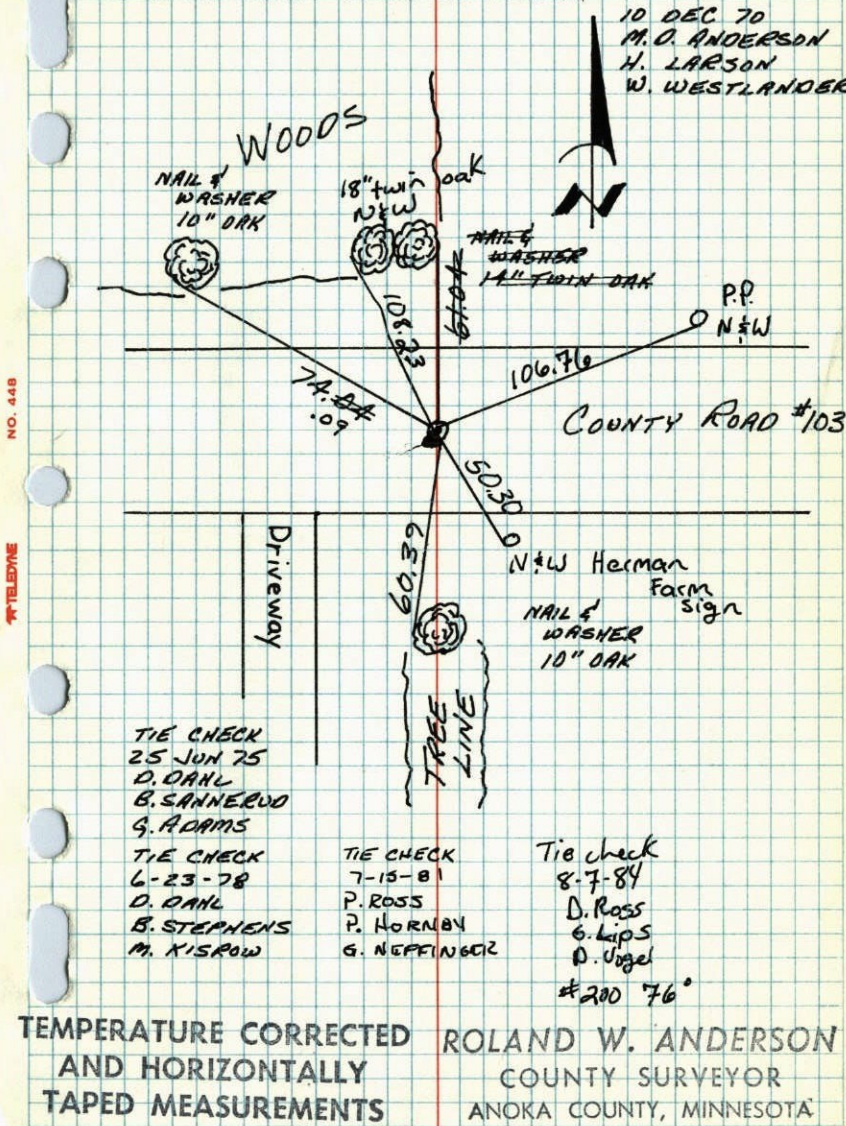 10 DEC 70
M.O. ANDERSON
H. LARSON
W. WESTLANDER
WOODS
NAIL &
WASHER
10" OAK
18" twin
N&W
oak
NAIL &
WASHER
14" TWIN OAK
61.04
P.P.
N&W
108.23
106.76
74.04
.09
COUNTY ROAD #103
50.30
NO. 448
TELEDYNE
Driveway
60.39
N&W Herman
Farm
sign
NAIL &
WASHER
10" OAK
TREE
LINE
TIE CHECK
25 JUN 75
D. DAHL
B. SANNERUD
G. ADAMS
TIE CHECK
6-23-78
D. DAHL
B. STEPHENS
M. KISROW
TIE CHECK
7-15-81
P. ROSS
P. HORNBY
G. NEFFINGER
Tie check
8-7-84
D. Ross
G. Lips
D. Vogel
#200 76°
TEMPERATURE CORRECTED
AND HORIZONTALLY
TAPED MEASUREMENTS
ROLAND W. ANDERSON
COUNTY SURVEYOR
ANOKA COUNTY, MINNESOTA